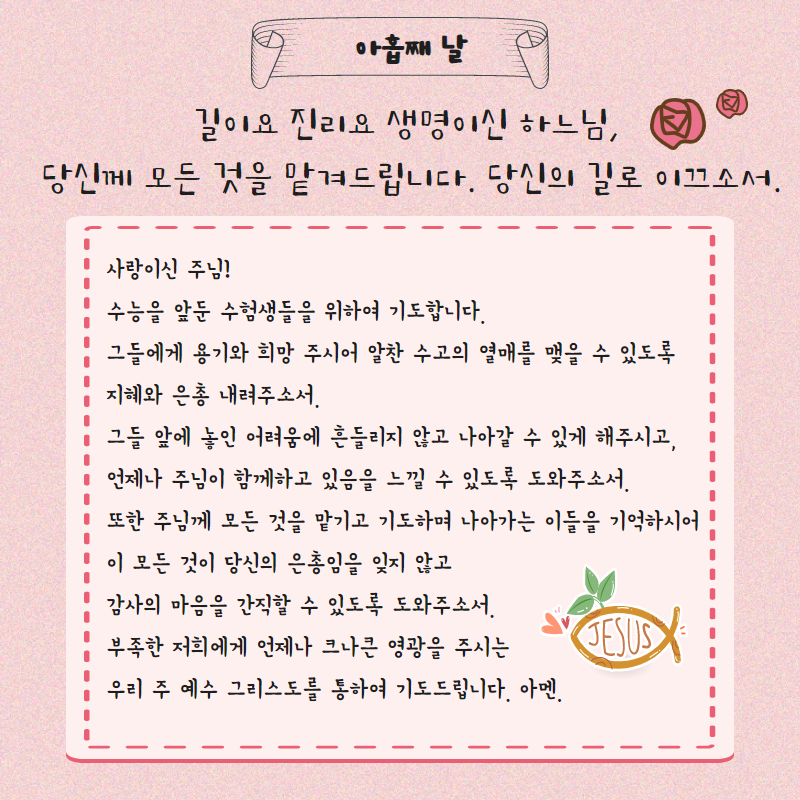 아홉째 날
길이요 진리요 생명이신 하느님,
당신께 모든 것을 맡겨드립니다. 당신의 길로 이끄소서.
사랑이신 주님!
수능을 앞둔 수험생들을 위하여 기도합니다.
그들에게 용기와 희망 주시어 알찬 수고의 열매를 맺을 수 있도록
지혜와 은총 내려주소서.
그들 앞에 놓인 어려움에 흔들리지 않고 나아갈 수 있게 해주시고,
언제나 주님이 함께하고 있음을 느낄 수 있도록 도와주소서.
또한 주님께 모든 것을 맡기고 기도하며 나아가는 이들을 기억하시어
이 모든 것이 당신의 은총임을 잊지 않고
감사의 마음을 간직할 수 있도록 도와주소서.
부족한 저희에게 언제나 크나큰 영광을 주시는
우리 주 예수 그리스도를 통하여 기도드립니다. 아멘.
JESUS